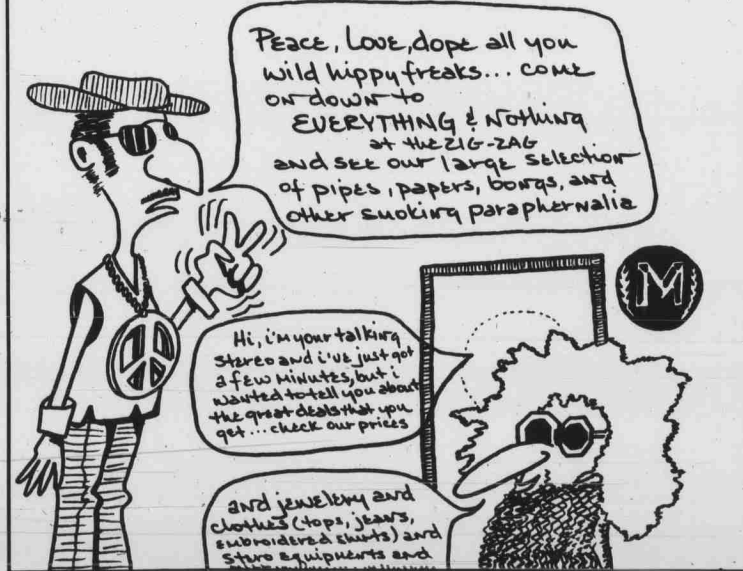 Peace, Love, dope all you
wild hippy freaks... come
on down to
EVERYTHING & Nothing
at the ZIG-ZAG
and see our large selection
of pipes, papers, bongs, and
other smoking paraphernalia
M
Hi, i'm your talking
Stereo and i've just got
a few minutes, but i
wanted to tell you about
the great deals that you
get... check our prices
and jewelery and
clothes (tops, jeans,
embroidered shirts) and
stero equipments and